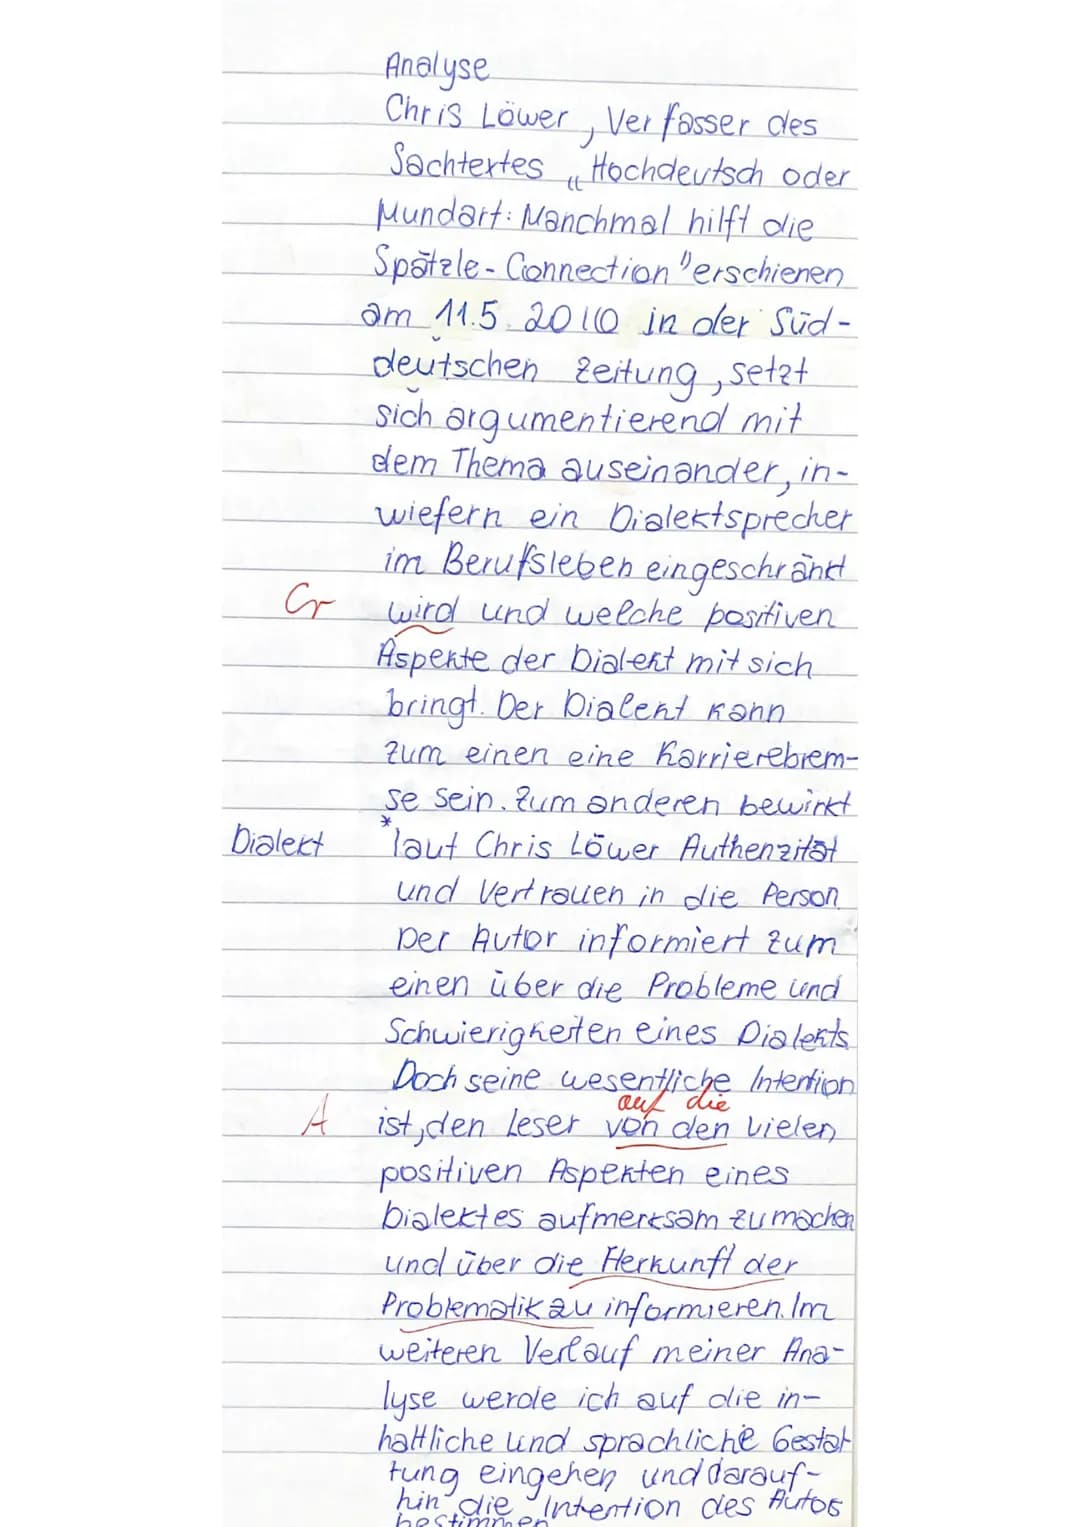 Analyse
Chris Löwer, Verfasser des
Sachtextes „Hochdeutsch oder
Mundart: Manchmal hilft die
Spätzle-Connection" erschienen
am 11.5.2010 in der Süd-
deutschen Zeitung, setzt
sich argumentierend mit
dem Thema auseinander, in-
wiefern ein Dialektsprecher
im Berufsleben eingeschränkt
Gr wird und welche positiven
Aspekte der Dialekt mit sich
bringt. Der Dialekt kann
zum einen eine Karrierebrem-
se sein. Zum anderen bewirkt
Dialekt *laut Chris Löwer Authenzität
und Vertrauen in die Person
Der Autor informiert zum
einen über die Probleme und
Schwierigkeiten eines Dialekts
Doch seine wesentliche Intention
auf die
A ist, den Leser von den vielen
positiven Aspekten eines
Dialektes aufmerksam zu machen
und über die Herkunft der
Problematik zu informieren. Im
weiteren Verlauf meiner Ana-
lyse werde ich auf die in-
haltliche und sprachliche Gestal
tung eingehen und darauf-
hin die Intention des Autos
bestimmen